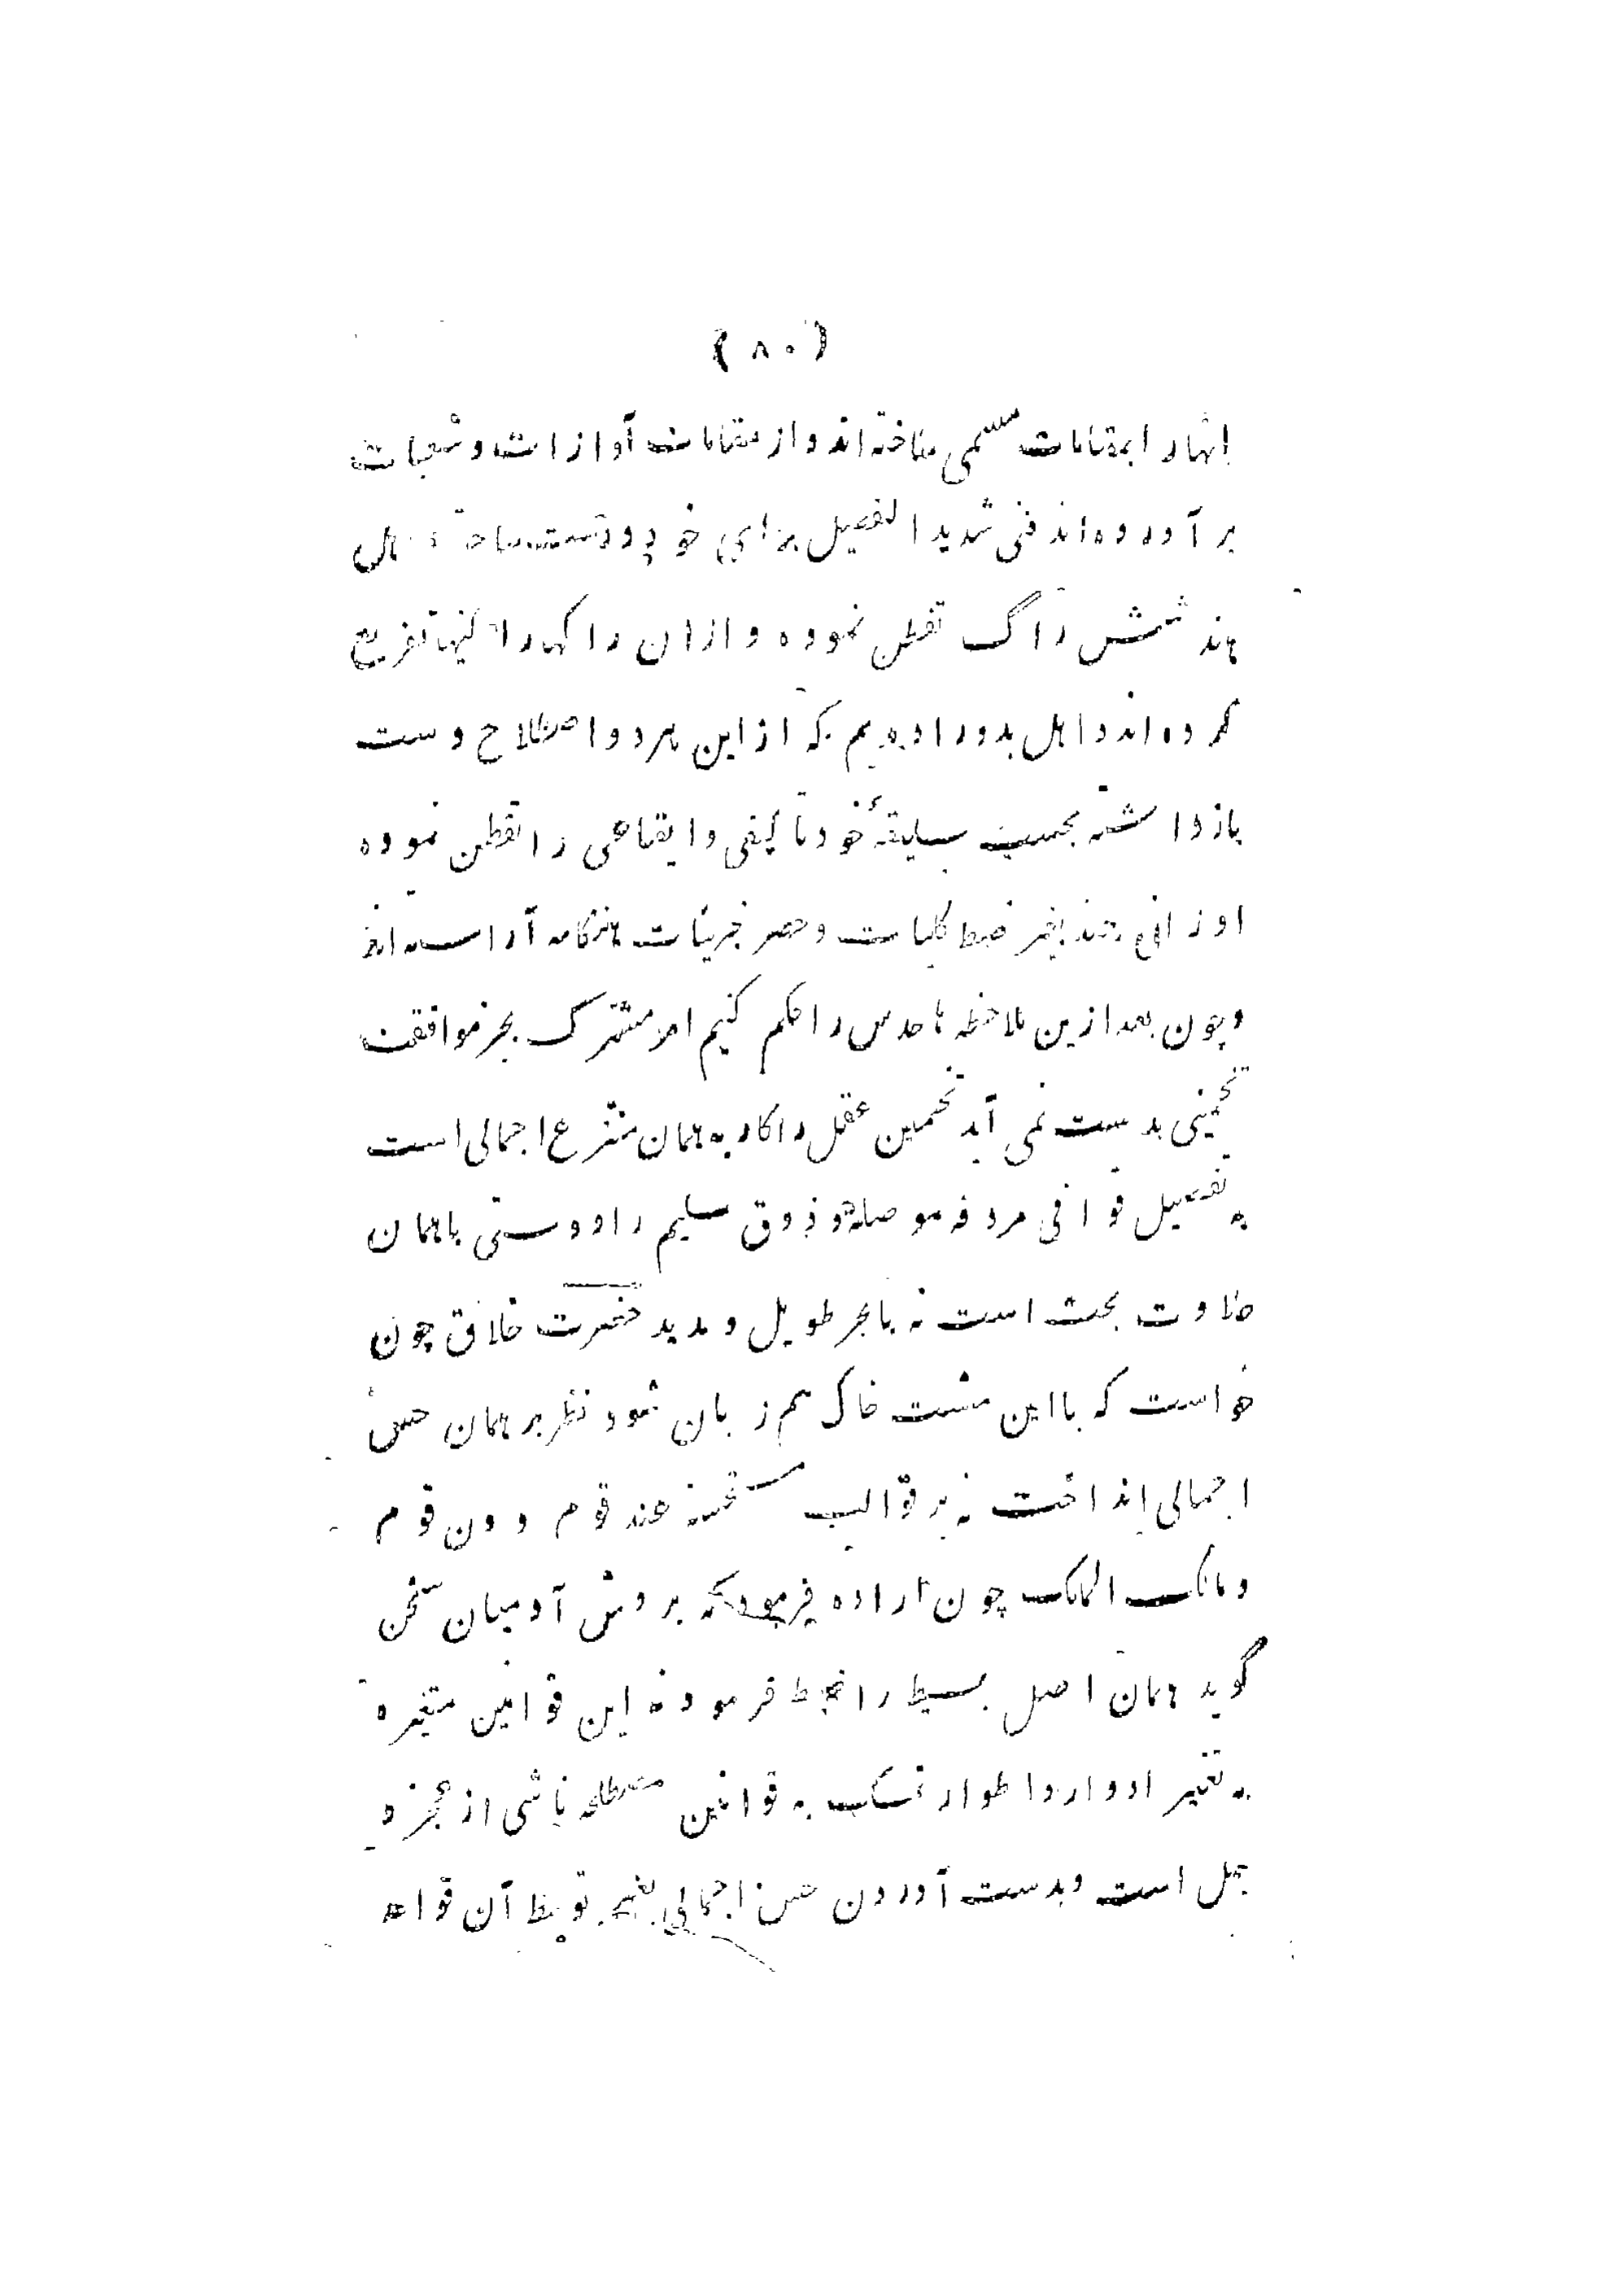 (۸۰)
اینهارا بمقامات مسمی ساخته‌اند و از مقامات آوازات و شعبات
برآورده‌اند فنی شدید التفصیل برای خود درست ساخته اهل
هند شش راگ تفطن نموده و ازان راگها راگنیها تفریع
کرده‌اند و اهل بدو را دیدیم که از این هر دو اصطلاح دست
باز داشته بحسب سلیقهٔ خود تالیفی و ایقاعی را تفطن نموده
اوزانی چند بغیر ضبط کلیات و حصر جزئیات هنگامه آراسته‌اند
و چون بعد ازین ملاحظه‌ها حدس را حکم کنیم امر مشترک بجز موافقت
تخمینی بدست نمی آید تخمین عقل را کار به همان منتزع اجمالی است
به تفصیل قوافی مردفه موصله و ذوق سلیم را دوستی با همان
حلاوت بحت است نه با بحر طویل و مدید حضرت خلاق چون
خواست که با این مشت خاک هم زبان شود نظر بر همان حسن
اجمالی انداخت نه بر قوالب مستحسنه عند قوم دون قوم
و مالک الملک چون اراده فرمود که بر روش آدمیان سخن
گوید همان اصل بسیط را ضبط فرمود نه این قوانین متغیره
به تغیر ادوار و اطوار تمسک به قوانین مصطلحه ناشی از عجز و
جهل است و بدست آوردن حسن اجمالی بغیر توسط آن قواعد